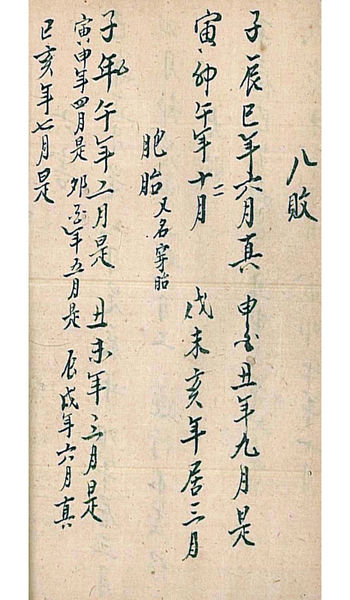 八敗
子辰巳年六月真 申酉丑年九月是
寅卯午年十二月 戌未亥年居三月
肥胎 又名穿胎
子年午年二月是 丑未年三月是
寅申年四月是 卯酉年五月是 辰戌年六月真
巳亥年七月是